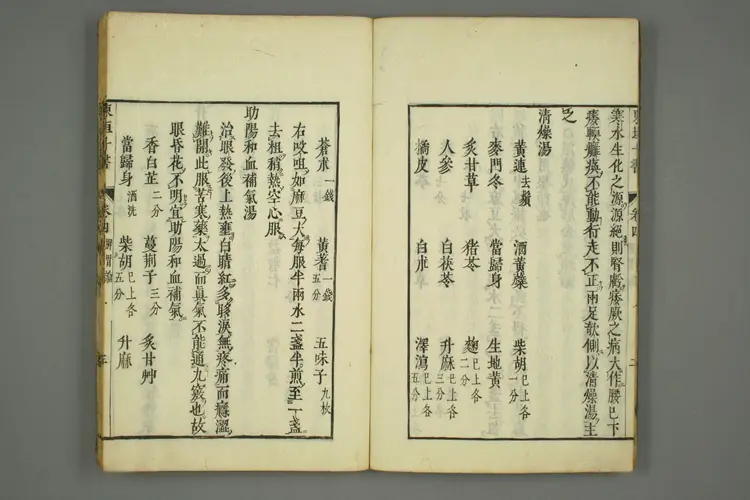 寒水生化之源源絕則腎虧痿厥之病大作腰已下
痿軟癱瘓不能動行走不正兩足欹側以清燥湯主
之
清燥湯
黃連去蘆 酒黃蘗 柴胡已上各一分
麥門冬 當歸身 生地黃
炙甘草 猪苓 麴已上各二分
人參 白茯苓 升麻已上各三分
橘皮 白朮 澤瀉已上各五分
蒼朮一錢 黃蓍一錢五分 五味子九枚
右㕮咀如麻豆大每服半兩水二盞半煎至一盞
去柤稍熱空心服
助陽和血補氣湯
治眼發後上熱壅白睛紅多眵淚無疼痛而癮澀
難開此服苦寒藥太過而真氣不能通九竅也故
眼昏花不明宜助陽和血補氣
香白芷二分 蔓荊子三分 炙甘艸
當歸身酒洗 柴胡已上各五分 升麻
東垣十書
卷四